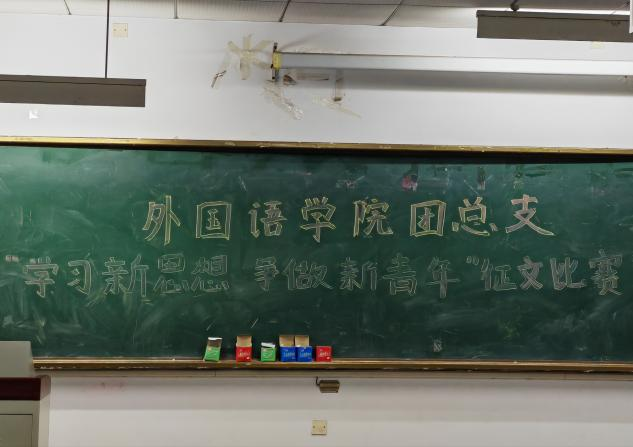 外国语学院团总支
“学习新思想 争做新青年”征文比赛